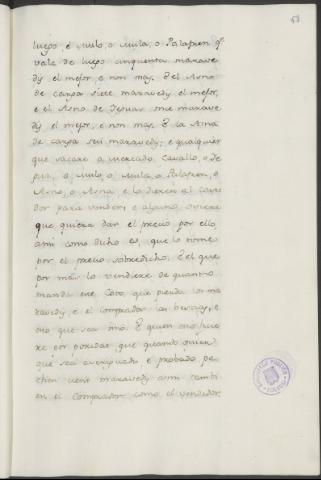 58
luego, e Mulo, o Mula, o Palafren q.e
vale de luego cinquenta marave
dis el mejor, e non mas, E el Asno
de carga siete maravedis el mejor,
e el Asno de Yeguas maravę
dis el mejor, e non mas, E la Asna
de carga seis maravedis; e qualquier
que sacare a mercado Cavallo, o Ye
gua, o Mulo, o Mula, o Palafren, o
Asno, o Asna e lo dieren al Corre
dor para vender; e alguno oviere
que quiera dar el precio por ello
asi como dicho es, que lo tome
por el precio sobredicho; E el que
por mas lo vendiere de quanto
manda este Coto, que pierda los ma
ravedis e el comprador las bestias, e
esto que sea mio. E quien esto ficie
re por poridat que quando quier
que sea averiguado e probado pe
chen cient maravedis assi tambi
en el Comprador como el vendedor,
BIBLIOTECA PUBLICA
TOLEDO